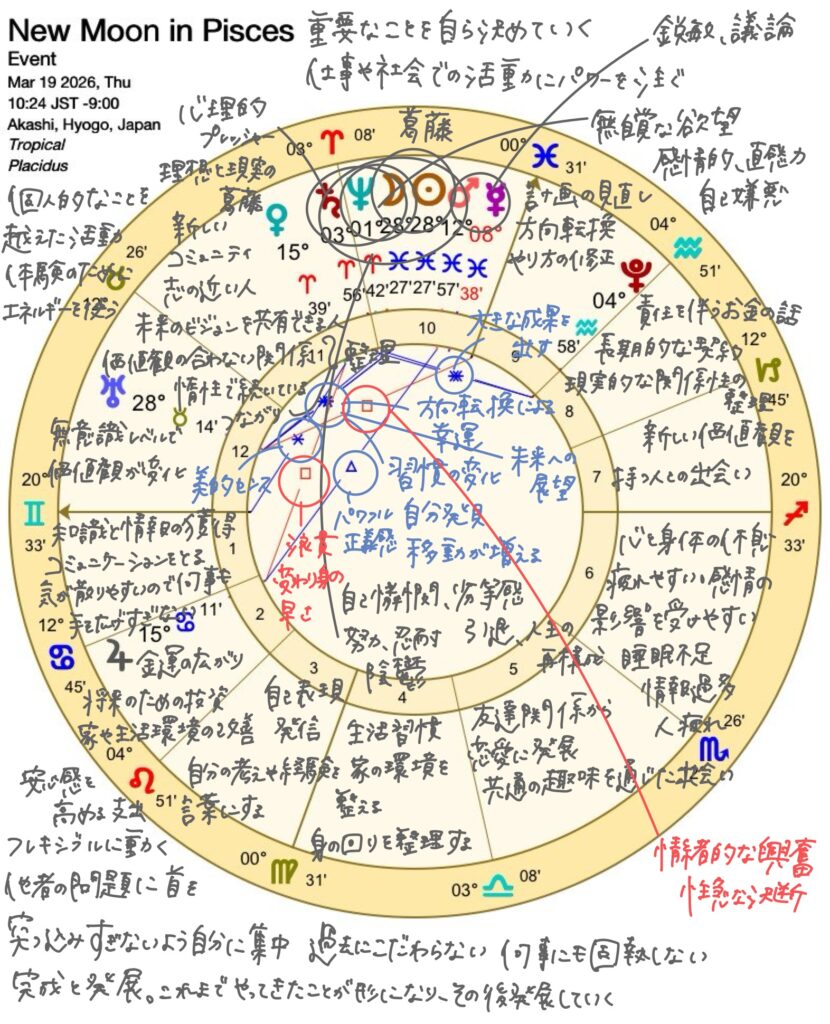 New Moon in Pisces
Event
Mar 19 2026, Thu
10:24 JST -9:00
Akashi, Hyogo, Japan
Tropical
Placidus
重要なことを自ら決めていく
仕事や社会での活動力にパワーを注ぐ
鋭敏、議論
心理的
プレッシャー
葛藤
無自覚な欲望
感情的、直感力
自己嫌悪
理想と現実の
葛藤
個人的なことを
越えた活動
体験のために
エネルギーを使う
新しい
コミュニティ
志の近い人
未来のビジョンを共有できる人
価値観の合わない関係
整理
惰性で続いている
つながり
計画の見直し
方向転換
やり方の修正
責任を伴うお金の話
長期的な契約
現実的な関係性の
整理
大きな成果を
出す
方向転換による
幸運
習慣の変化
未来への
展望
自分発見
移動が増える
パワフル
正義感
美的センス
浪費
変わり身の
早さ
無意識レベルで
価値観が変化
新しい価値観を
持つ人との出会い
知識と情報の獲得
コミュニケーションをとる
気が散りやすいので何事も
手を広げすぎない
心と身体の不調
疲れやすい感情の
影響を受けやすい
睡眠不足
情報過多
人疲れ
自己憐憫、劣等感
努力、忍耐
陰鬱
引退、人生の
再構成
金運の広がり
将来のための投資
家や生活環境の改善
自己表現
発信
自分の考えや経験を
言葉にする
生活習慣
家の環境を
整える
身の回りを整理する
友達関係から
恋愛に発展
共通の趣味を通じた出会い
安心感を
高める支出
情緒的な興奮
性急な決断
フレキシブルに動く
他者の問題に首を
突っ込みすぎないよう自分に集中 過去にこだわらない 何事にも固執しない
完成と発展。これまでやってきたことが形になり、その後発展していく
03°
08'
00°
31'
04°
51'
12°
45'
20°
33'
26'
03°
08'
00°
31'
04°
51'
12°
45'
20°
33'
26'
15°
39'
03°
56'
01°
42'
28°
27'
28°
27'
12°
57'
08°
38'
04°
58'
28°
14'
15°
11'
1
2
3
4
5
6
7
8
9
10
11
12